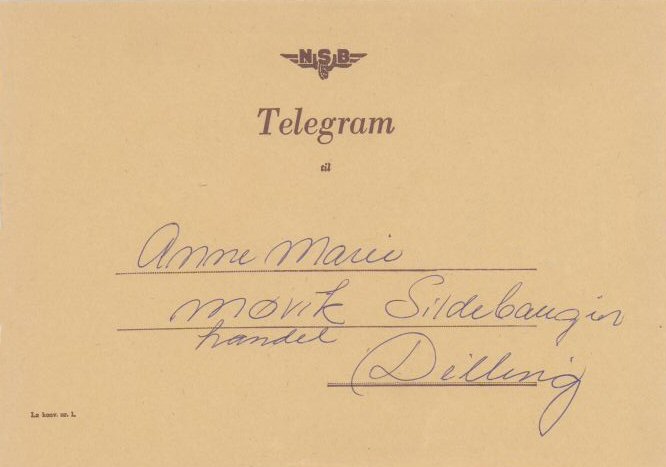 NSB
Telegram
til
Anne Marie
Møvik Sildebaugien
handel
Dilling
La konv. nr. 1.